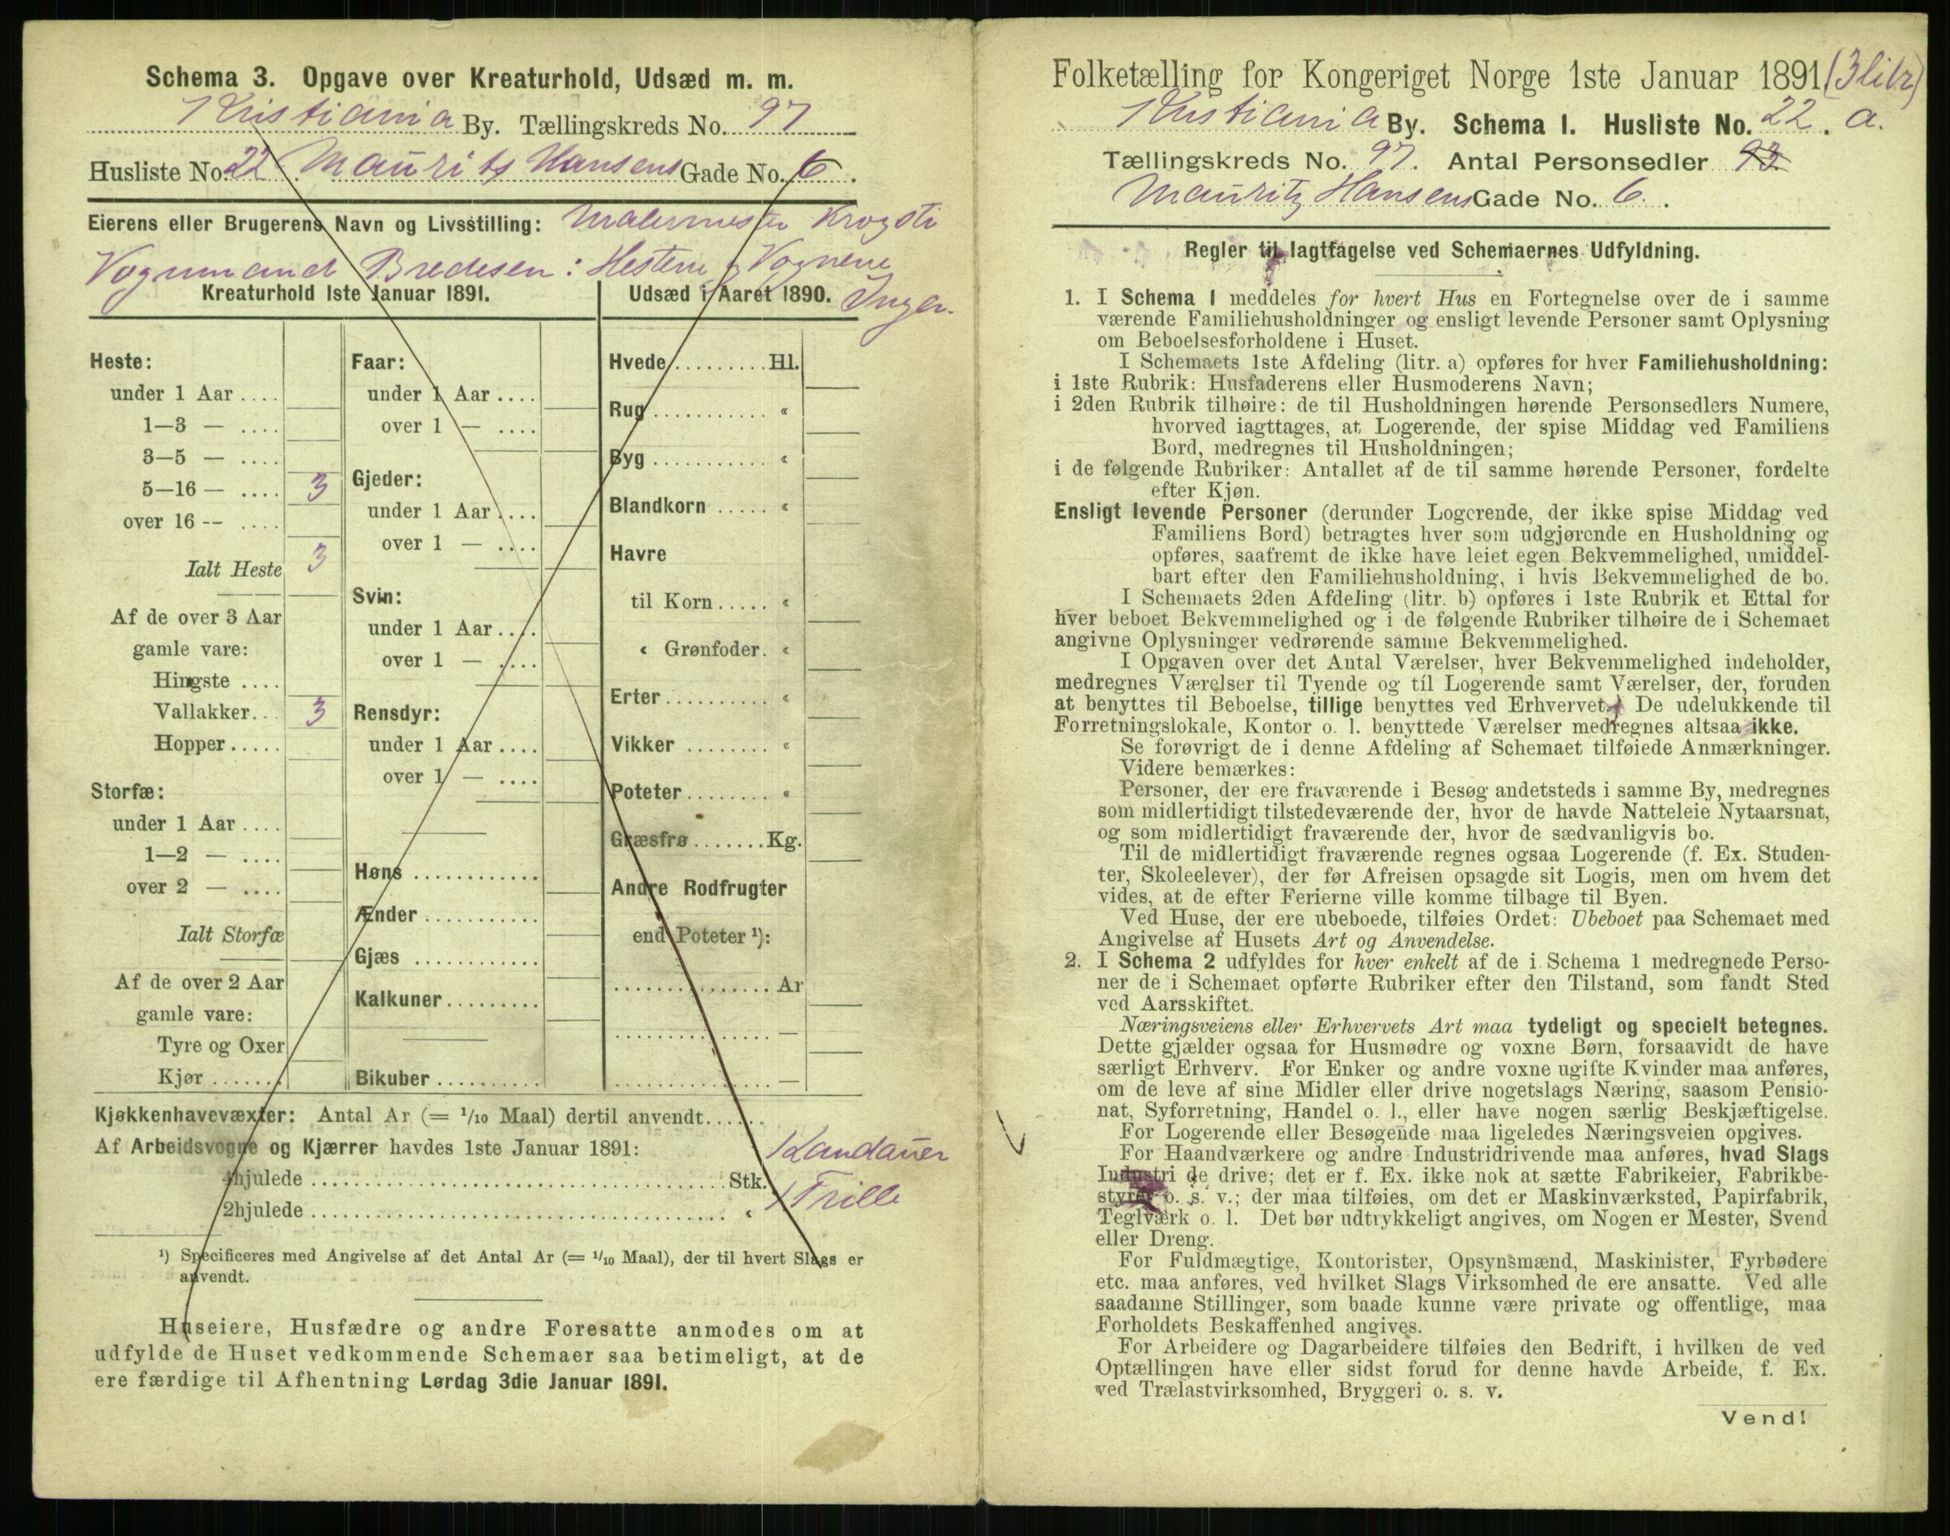 Schema 3. Opgave over Kreaturhold, Udsæd m. m.
Kristiania By. Tællingskreds No. 97
Husliste No. 22. Maurits Hansens Gade No. 6.
Eierens eller Brugerens Navn og Livsstilling: Malermester Krogsti
Vognmand Bredesen: Hestene og Vognene
Kreaturhold 1ste Januar 1891.
Udsæd i Aaret 1890. Inger.
Heste:
under 1 Aar ....
1—3 — ....
3—5 — ....
5—16 — .... 3
over 16 -- ....
Ialt Heste 3
Af de over 3 Aar
gamle vare:
Hingste ....
Vallakker... 3
Hopper.....
Storfæ:
under 1 Aar ....
1—2 — ....
over 2 — ....
Ialt Storfæ
Af de over 2 Aar
gamle vare:
Tyre og Oxer
Kjør .......
Faar:
under 1 Aar ....
over 1 — ....
Gjeder:
under 1 Aar ....
over 1 — ....
Svin:
under 1 Aar ....
over 1 — ....
Rensdyr:
under 1 Aar ....
over 1 — ....
Høns ............
Ænder ...........
Gjæs ............
Kalkuner.........
Bikuber ..........
Hvede.........Hl.
Rug ........... "
Byg ........... "
Blandkorn ..... "
Havre
til Korn..... "
" Grønfoder. "
Erter .......... "
Vikker ......... "
Poteter........ "
Græsfrø .......Kg.
Andre Rodfrugter
end Poteter ¹):
................Ar
................—
................—
Kjøkkenhavevæxter: Antal Ar (= 1/10 Maal) dertil anvendt......
Af Arbeidsvogne og Kjærrer havdes 1ste Januar 1891:
4hjulede ....................................Stk. 1 Landauer
2hjulede .................................... " 1 Trille
¹) Specificeres med Angivelse af det Antal Ar (= 1/10 Maal), der til hvert Slags er
anvendt.
Huseiere, Husfædre og andre Foresatte anmodes om at
udfylde de Huset vedkommende Schemaer saa betimeligt, at de
ere færdige til Afhentning Lørdag 3die Januar 1891.
Folketælling for Kongeriget Norge 1ste Januar 1891 (3 litr)
Kristiania By. Schema I. Husliste No. 22. a.
Tællingskreds No. 97. Antal Personsedler 93.
Mauritz Hansens Gade No. 6.
Regler til Iagttagelse ved Schemaernes Udfyldning.
1. I Schema 1 meddeles for hvert Hus en Fortegnelse over de i samme
værende Familiehusholdninger og ensligt levende Personer samt Oplysning
om Beboelsesforholdene i Huset.
I Schemaets 1ste Afdeling (litr. a) opføres for hver Familiehusholdning:
i 1ste Rubrik: Husfaderens eller Husmoderens Navn;
i 2den Rubrik tilhøire: de til Husholdningen hørende Personsedlers Numere,
hvorved iagttages, at Logerende, der spise Middag ved Familiens
Bord, medregnes til Husholdningen;
i de følgende Rubriker: Antallet af de til samme hørende Personer, fordelte
efter Kjøn.
Ensligt levende Personer (derunder Logerende, der ikke spise Middag ved
Familiens Bord) betragtes hver som udgjørende en Husholdning og
opføres, saafremt de ikke have leiet egen Bekvemmelighed, umiddel-
bart efter den Familiehusholdning, i hvis Bekvemmelighed de bo.
I Schemaets 2den Afdeling (litr. b) opføres i 1ste Rubrik et Ettal for
hver beboet Bekvemmelighed og i de følgende Rubriker tilhøire de i Schemaet
angivne Oplysninger vedrørende samme Bekvemmelighed.
I Opgaven over det Antal Værelser, hver Bekvemmelighed indeholder,
medregnes Værelser til Tyende og til Logerende samt Værelser, der, foruden
at benyttes til Beboelse, tillige benyttes ved Erhvervet. De udelukkende til
Forretningslokale, Kontor o. l. benyttede Værelser medregnes altsaa ikke.
Se forøvrigt de i denne Afdeling af Schemaet tilføiede Anmærkninger.
Videre bemærkes:
Personer, der ere fraværende i Besøg andetsteds i samme By, medregnes
som midlertidigt tilstedeværende der, hvor de havde Natteleie Nytaarsnat,
og som midlertidigt fraværende der, hvor de sædvanligvis bo.
Til de midlertidigt fraværende regnes ogsaa Logerende (f. Ex. Studen-
ter, Skoleelever), der før Afreisen opsagde sit Logis, men om hvem det
vides, at de efter Ferierne ville komme tilbage til Byen.
Ved Huse, der ere ubeboede, tilføies Ordet: Ubeboet paa Schemaet med
Angivelse af Husets Art og Anvendelse.
2. I Schema 2 udfyldes for hver enkelt af de i Schema 1 medregnede Perso-
ner de i Schemaet opførte Rubriker efter den Tilstand, som fandt Sted
ved Aarsskiftet.
Næringsveiens eller Erhvervets Art maa tydeligt og specielt betegnes.
Dette gjælder ogsaa for Husmødre og voxne Børn, forsaavidt de have
særligt Erhverv. For Enker og andre voxne ugifte Kvinder maa anføres,
om de leve af sine Midler eller drive nogetslags Næring, saasom Pensio-
nat, Syforretning, Handel o. l., eller have nogen særlig Beskjæftigelse.
For Logerende eller Besøgende maa ligeledes Næringsveien opgives.
For Haandværkere og andre Industridrivende maa anføres, hvad Slags
Industri de drive; det er f. Ex. ikke nok at sætte Fabrikeier, Fabrikbe-
styrer o. s. v.; der maa tilføies, om det er Maskinværksted, Papirfabrik,
Teglværk o. l. Det bør udtrykkeligt angives, om Nogen er Mester, Svend
eller Dreng.
For Fuldmægtige, Kontorister, Opsynsmænd, Maskinister, Fyrbødere
etc. maa anføres, ved hvilket Slags Virksomhed de ere ansatte. Ved alle
saadanne Stillinger, som baade kunne være private og offentlige, maa
Forholdets Beskaffenhed angives.
For Arbeidere og Dagarbeidere tilføies den Bedrift, i hvilken de ved
Optællingen have eller sidst forud for denne havde Arbeide, f. Ex.
ved Trælastvirksomhed, Bryggeri o. s. v.
Vend!